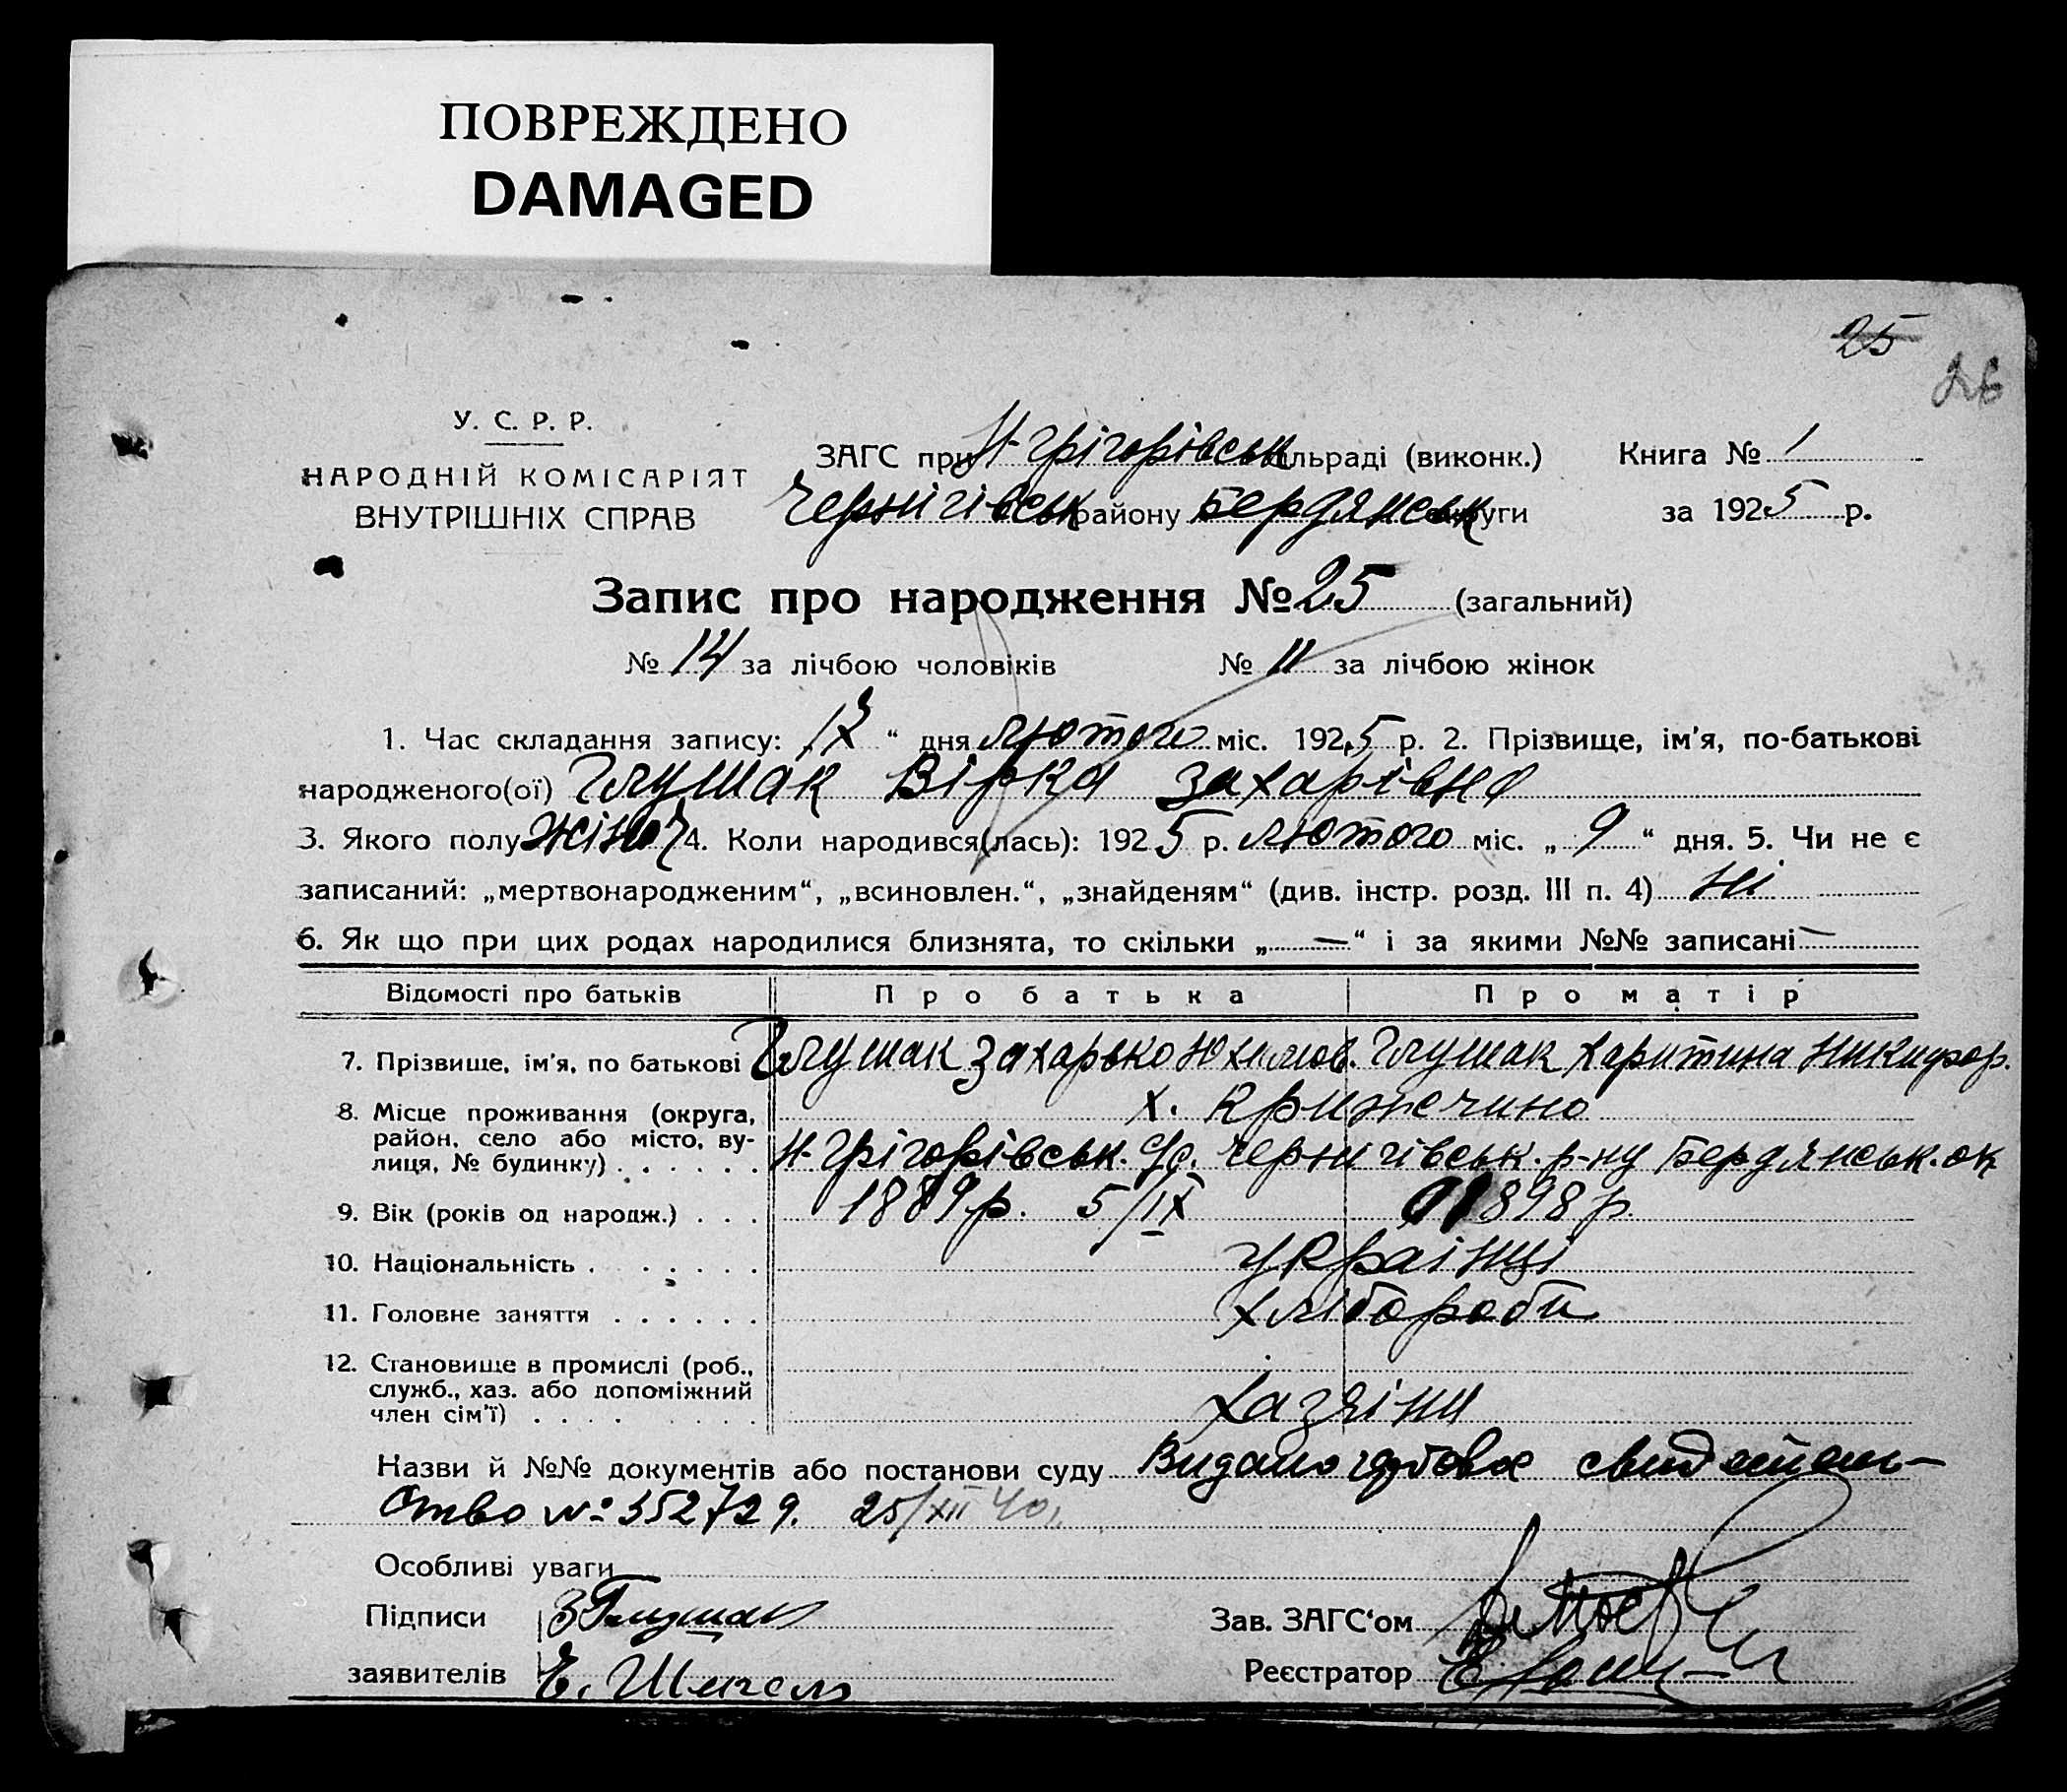 ПОВРЕЖДЕНО
DAMAGED
25
26
У. С. Р. Р.
НАРОДНІЙ КОМІСАРІЯТ
ВНУТРІШНІХ СПРАВ
ЗАГС при Н-Грігорівськ сільраді (виконк.) Книга № 1
Чернігівськ району Бердянськ округи за 1925 р.
Запис про народження № 25 (загальний)
№ 14 за лічбою чоловіків № 11 за лічбою жінок
1. Час складання запису: „ “ дня лютого міс. 1925 р. 2. Прізвище, ім'я, по-батькові
народженого(ої) Глушак Вірка Захарівна
3. Якого полу жіноч 4. Коли народився(лась): 1925 р. лютого міс. „ 9 “ дня. 5. Чи не є
записаний: „мертвонародженим“, „всиновлен.“, „знайденям“ (див. інстр. розд. III п. 4) ні
6. Як що при цих родах народилися близнята, то скільки „ — “ і за якими №№ записані —
Відомості про батьків Про батька Про матір
7. Прізвище, ім'я, по батькові Глушак Захарько Юхимов. Глушак Харитина Никифор.
8. Місце проживання (округа, х. Крижечино
район, село або місто, ву-
лиця, № будинку) . . . . . . Н-Грігорівськ. с/р. Чернигівськ. р-ну Бердянськ. ок
9. Вік (років од народж.) . . . 1889 р. 5/IX 1898 р.
10. Національність . . . . . . Українці
11. Головне заняття . . . . . . Хлібороби
12. Становище в промислі (роб.,
служб., хаз. або допоміжний
член сім'ї) . . . . . . . . Хазяіни
Назви й №№ документів або постанови суду Видано свидетель-
ство № 352729. 25/XII 40
Особливі уваги
Підписи З Глушак Зав. ЗАГС'ом
заявителів Реєстратор